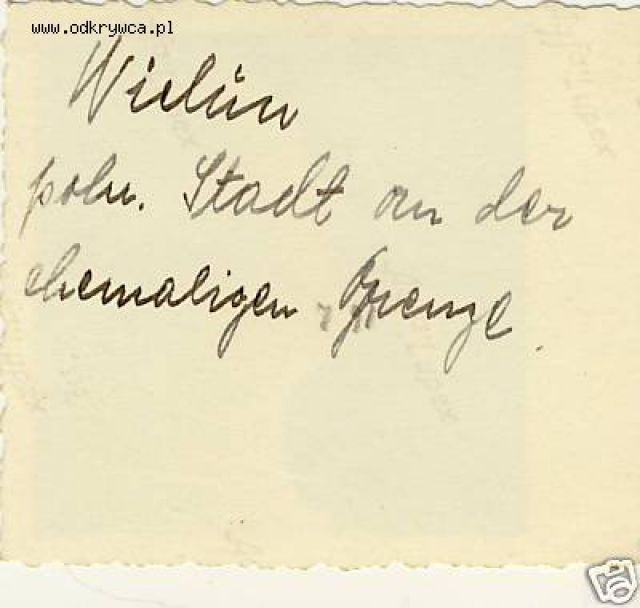 www.odkrywca.pl
Wielün
poln. Stadt an der
ehemaligen Grenze.